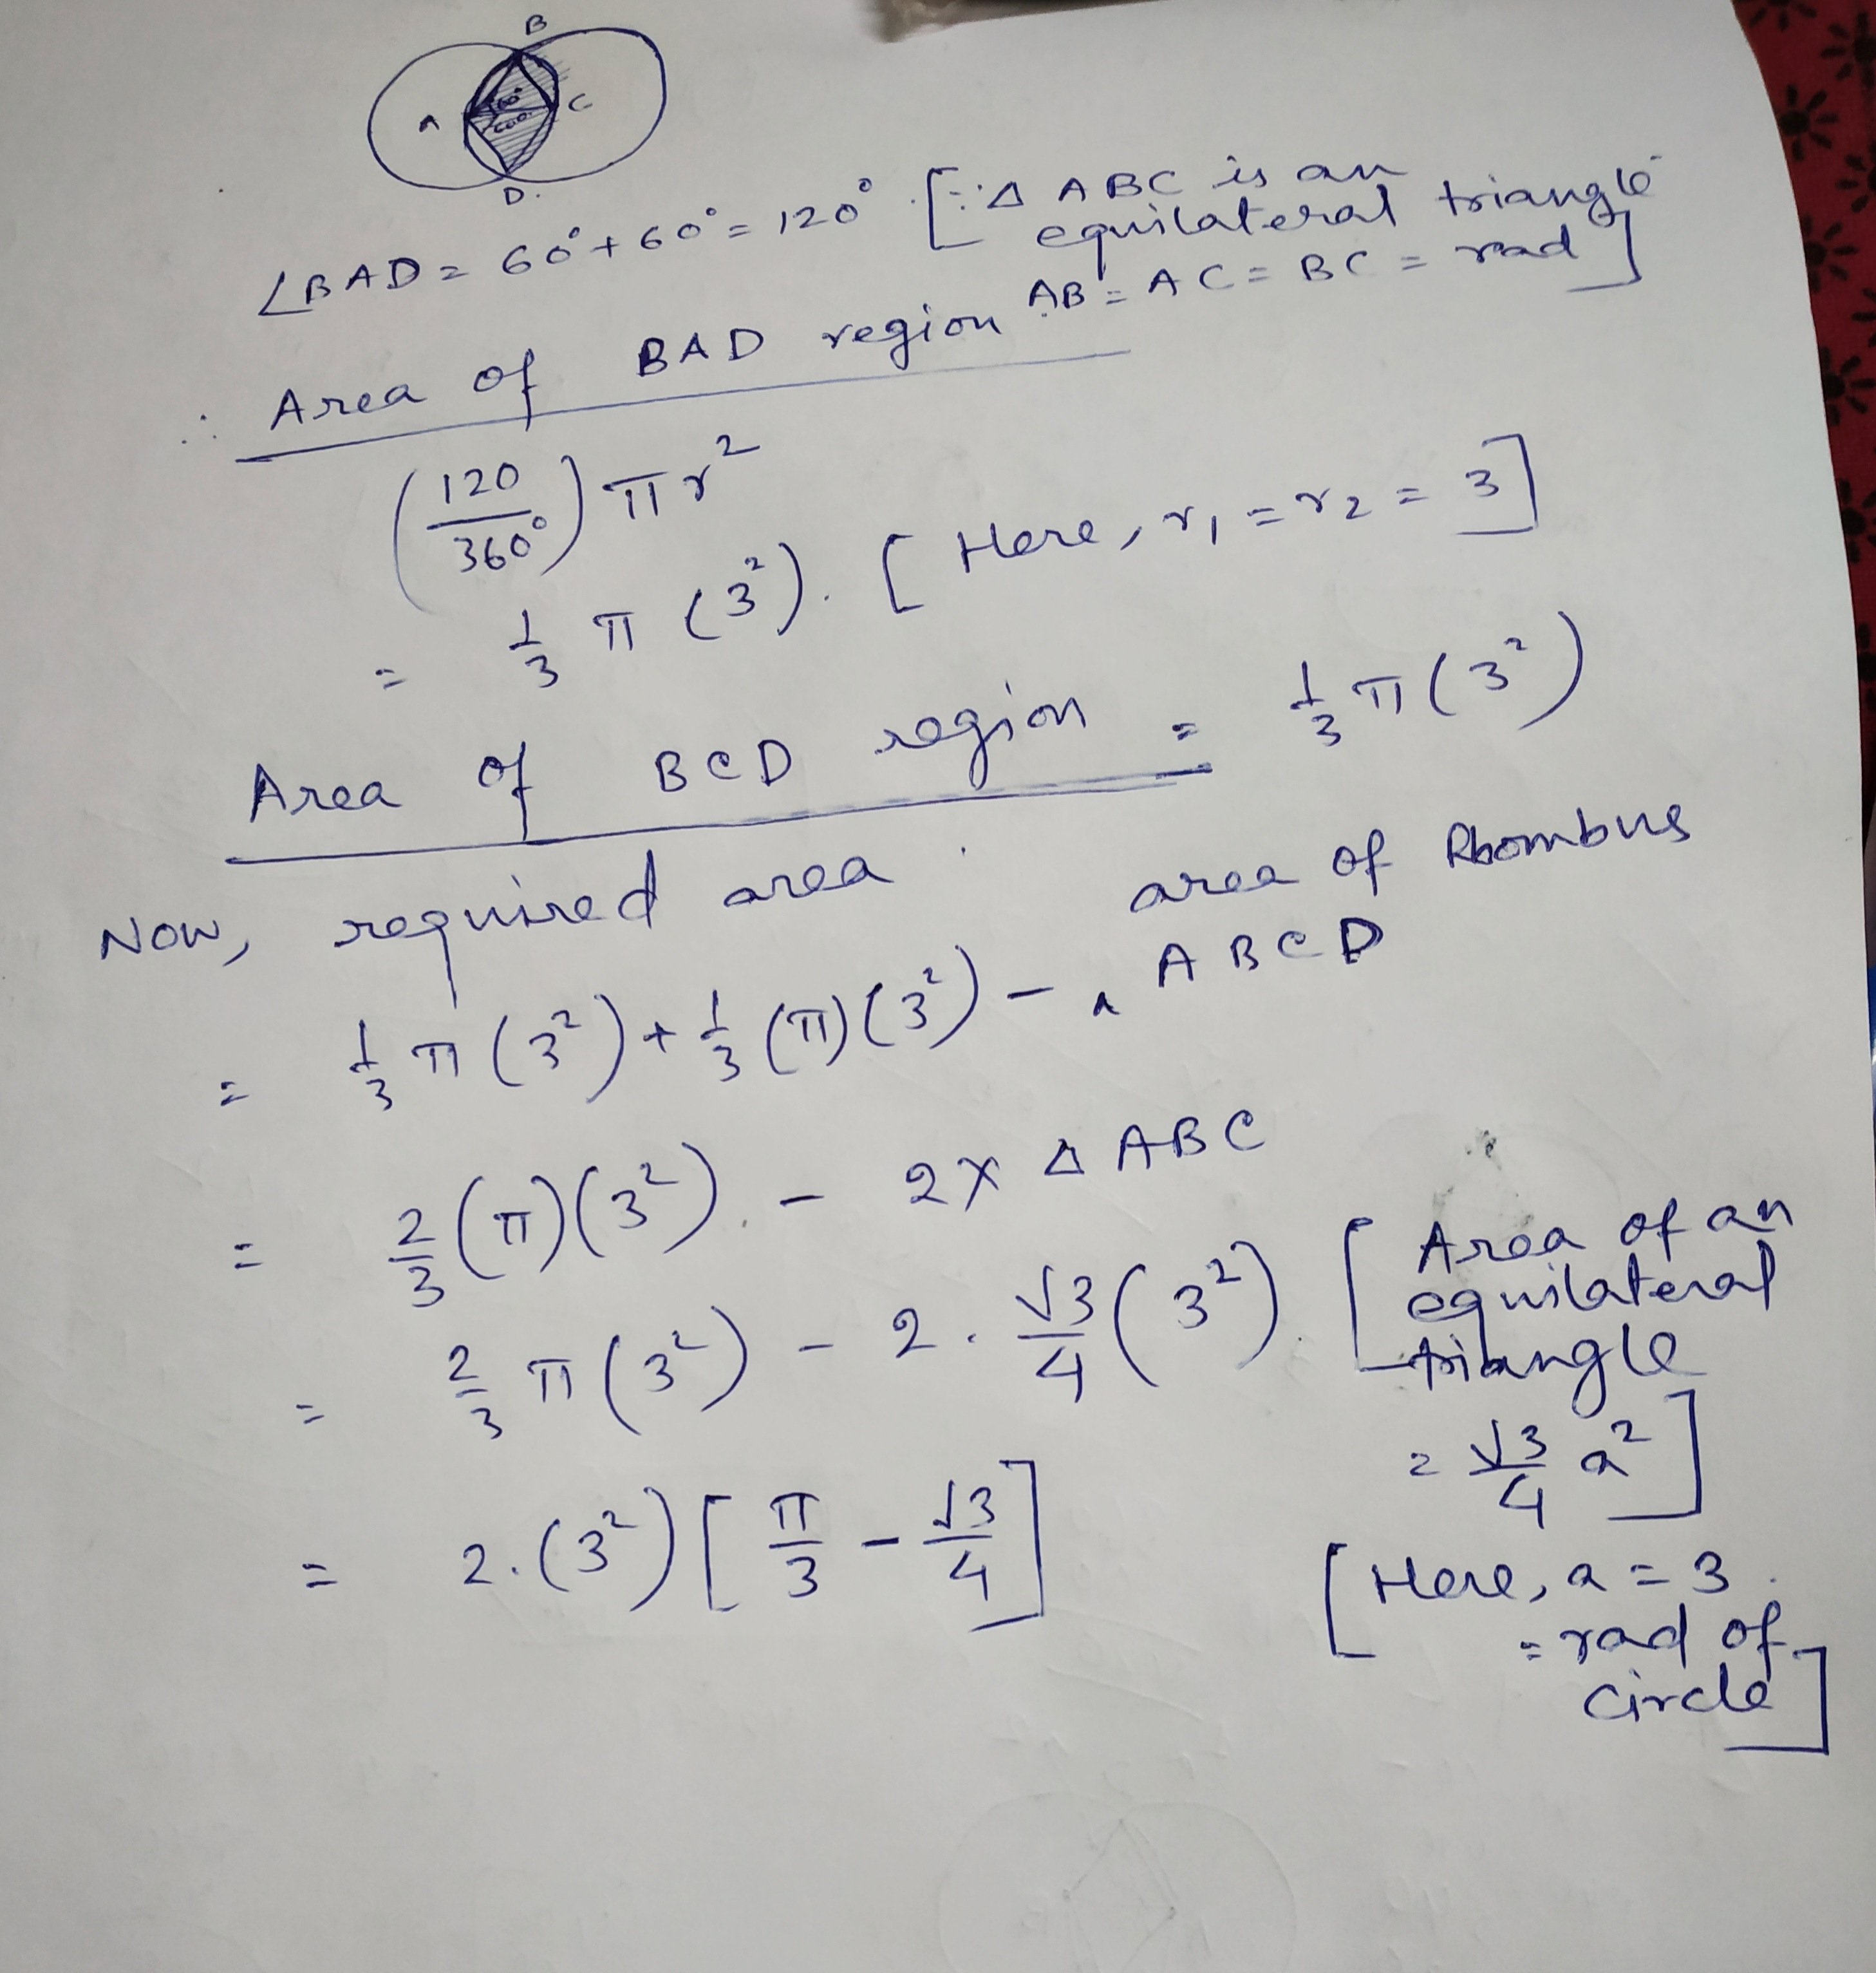 B
A 60° C
60°
D.
∠BAD = 60° + 60° = 120° [∵ Δ ABC is an
equilateral triangle
AB = AC = BC = rad]
∴ Area of BAD region
(120/360°) πr²
= 1/3 π (3²). [Here, r₁ = r₂ = 3]
Area of BCD region = 1/3 π (3²)
Now, required area
= 1/3 π (3²) + 1/3 (π)(3²) - area of Rhombus
ABCD
= 2/3 (π)(3²) - 2 × Δ ABC
= 2/3 π (3²) - 2 . √3/4 (3²) [Area of an
equilateral
triangle
= √3/4 a²]
= 2.(3²) [π/3 - √3/4]
[Here, a = 3
= rad of
circle]